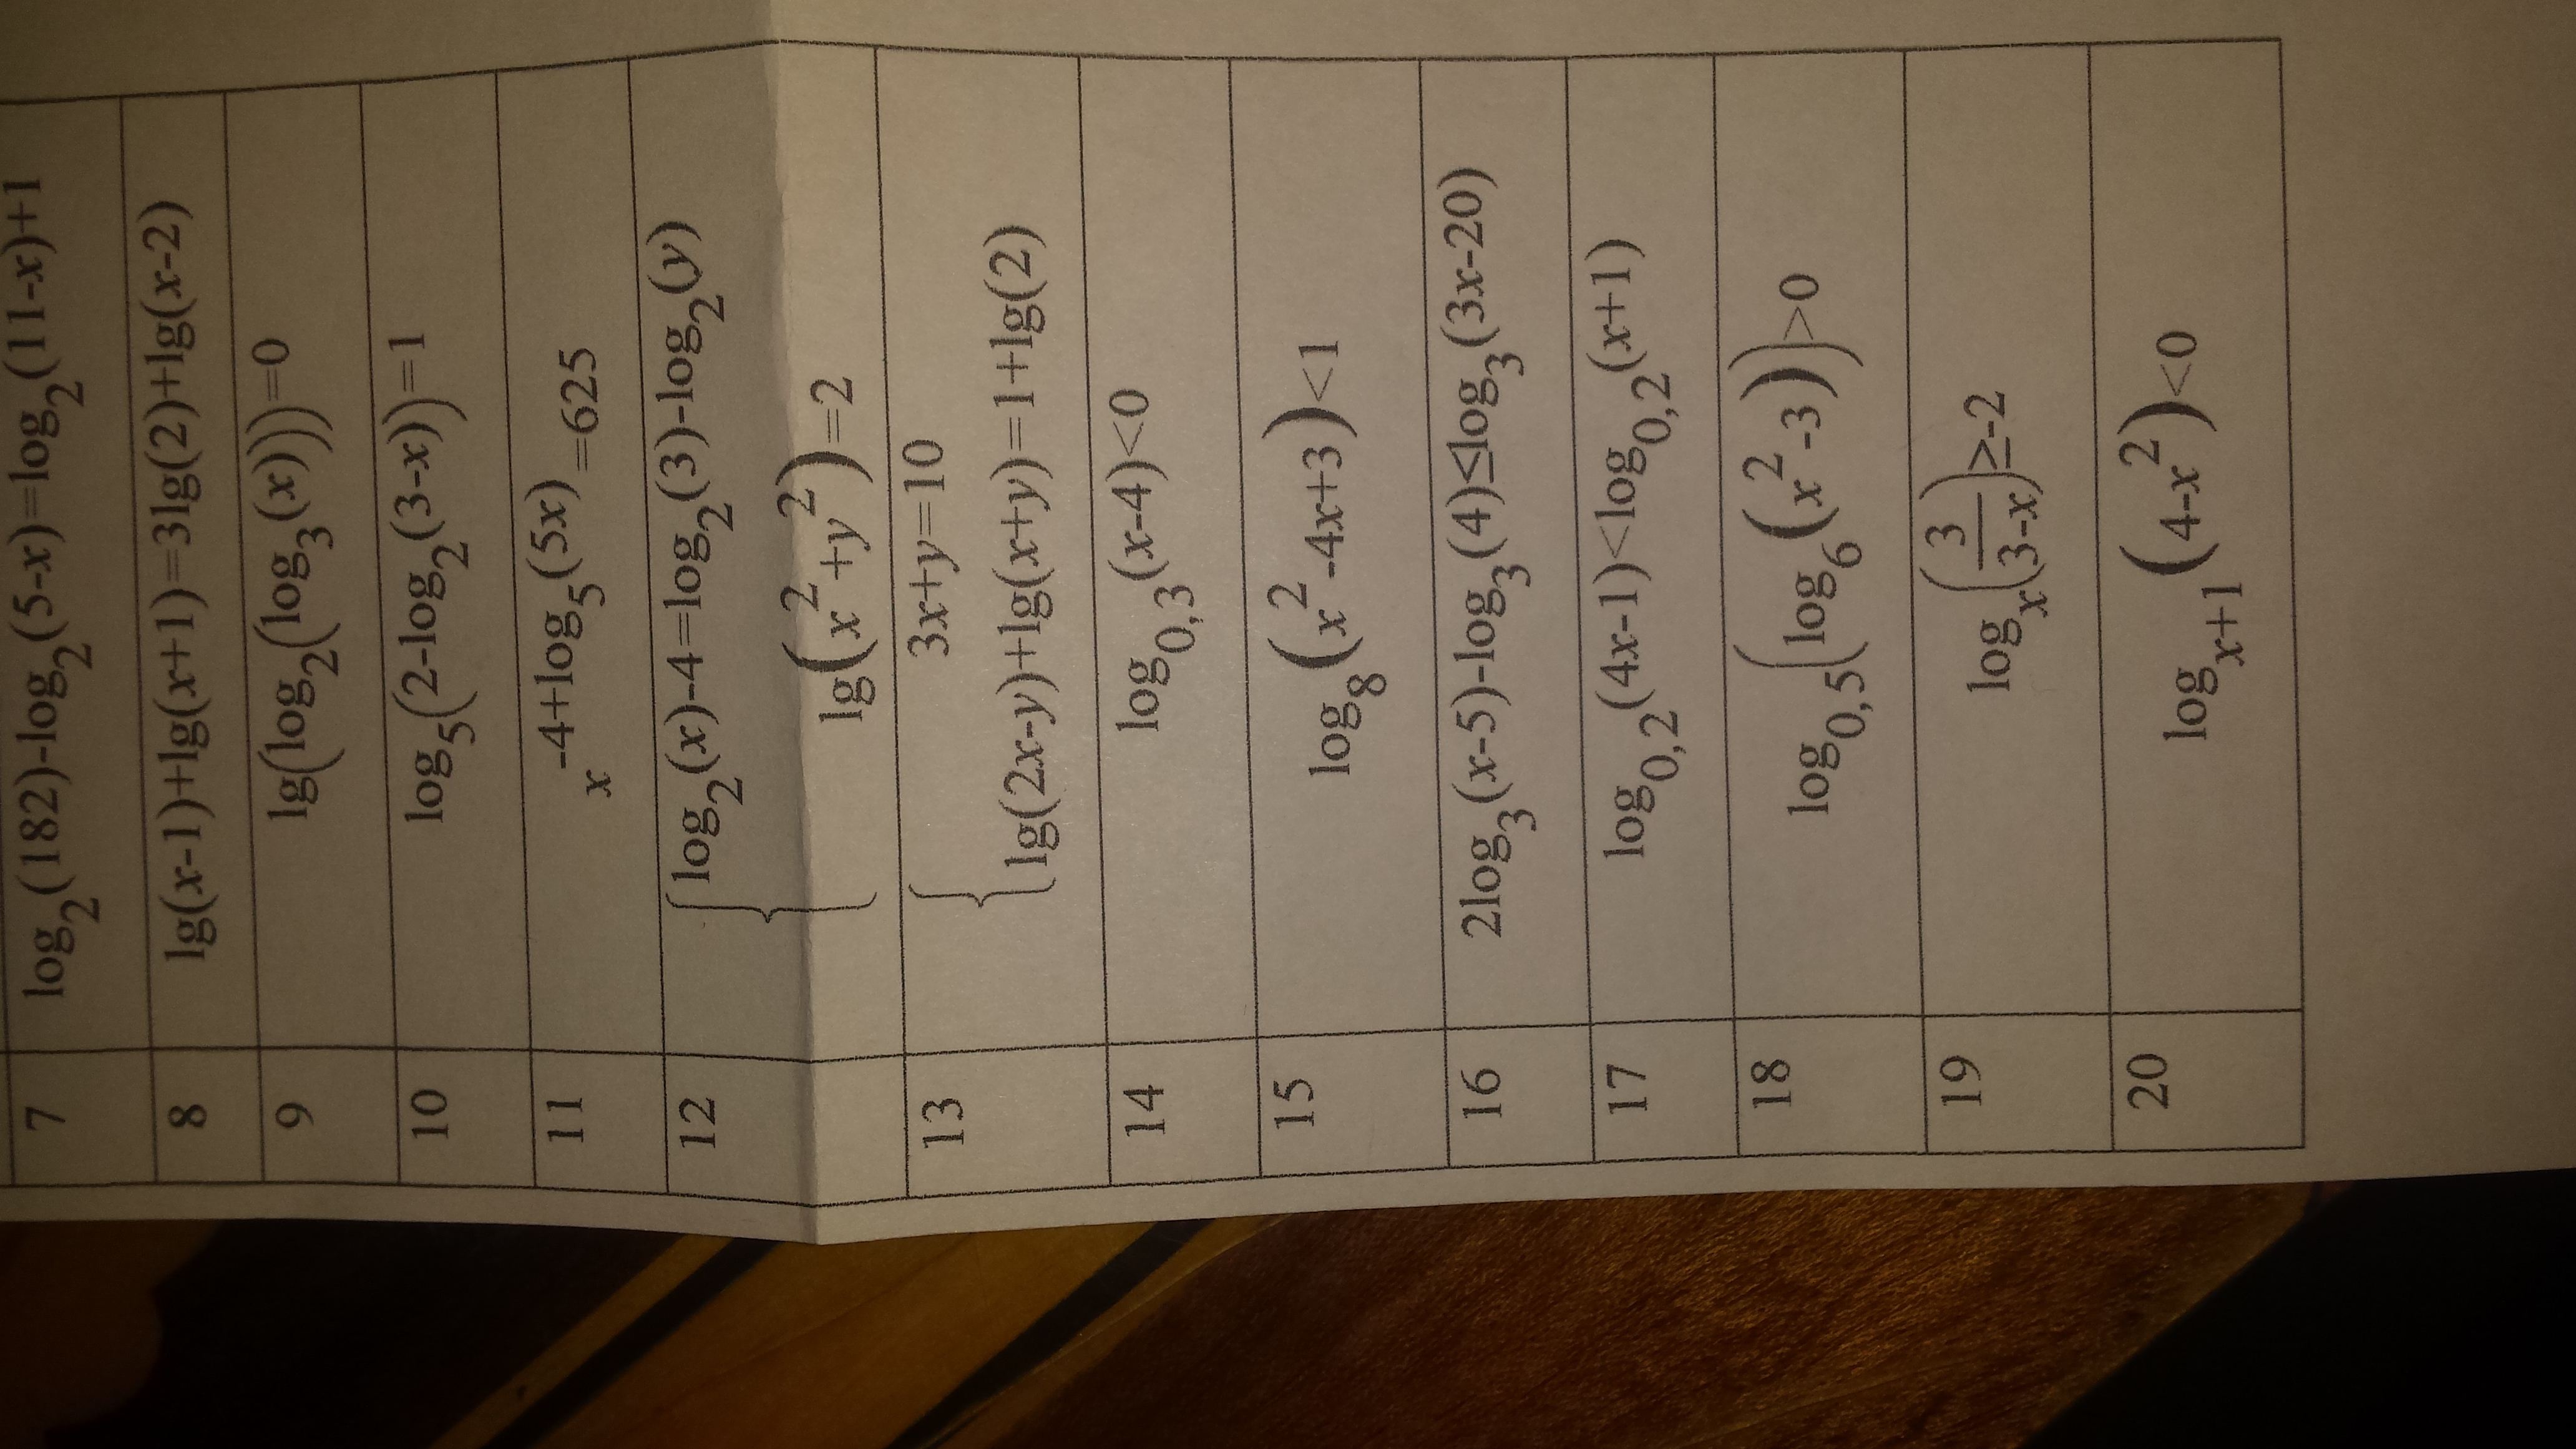 7 log₂(182)-log₂(5-x)=log₂(11-x)+1
8 lg(x-1)+lg(x+1)=3lg(2)+lg(x-2)
9 lg(log₂(log₃(x)))=0
10 log₅(2-log₂(3-x))=1
11 x^(-4+log₅(5x))=625
12 {log₂(x)-4=log₂(3)-log₂(y)
lg(x²+y²)=2
13 { 3x+y=10
lg(2x-y)+lg(x+y)=1+lg(2)
14 log₀,₃(x-4)<0
15 log₈(x²-4x+3)<1
16 2log₃(x-5)-log₃(4)≤log₃(3x-20)
17 log₀,₂(4x-1)<log₀,₂(x+1)
18 log₀,₅(log₆(x²-3))>0
19 logₓ(3/(3-x))≥-2
20 logₓ₊₁(4-x²)<0